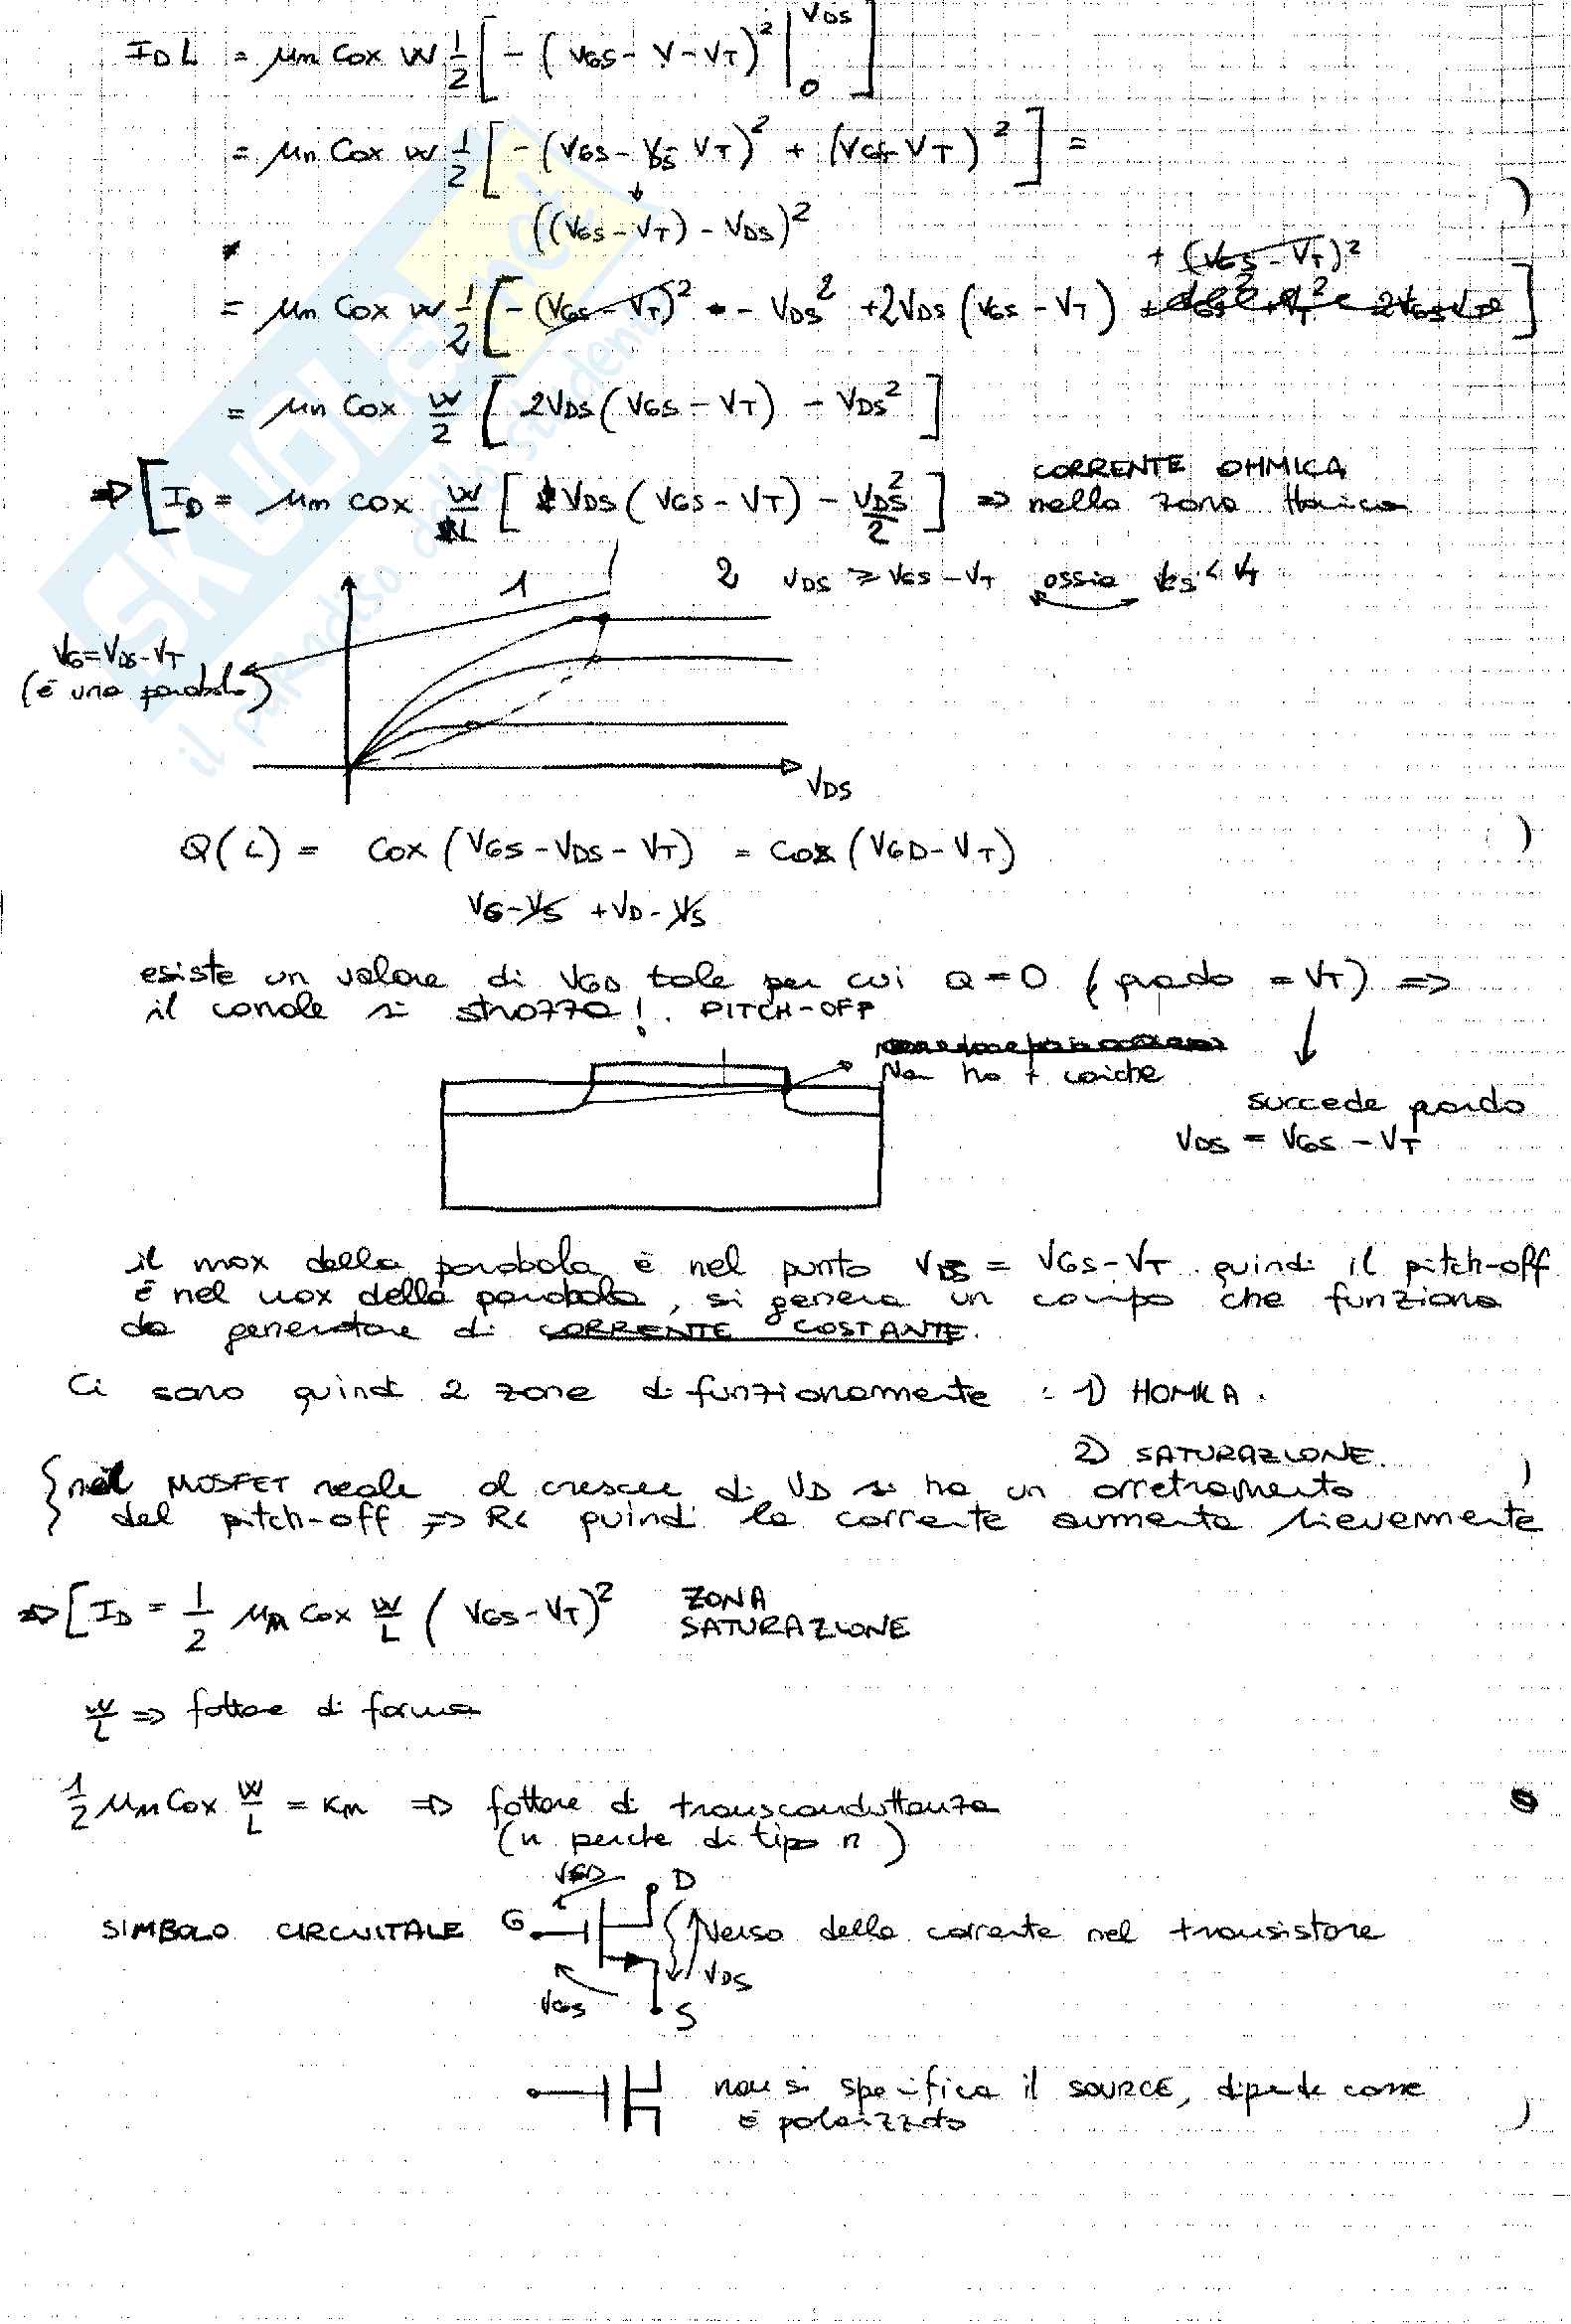 I_D L = μn Cox W 1/2 [ - (VGS - V - VT)² |₀^VDS ]
= μn Cox W 1/2 [ -(VGS - VDS - VT)² + (VGS - VT)² ] =
((VGS - VT) - VDS)²
+ (VGS - VT)²
= μn Cox W 1/2 [ -(VGS - VT)² - VDS² + 2VDS (VGS - VT) ]
= μn Cox W/2 [ 2VDS (VGS - VT) - VDS² ]
CORRENTE OHMICA
⇒ [ ID = μn Cox W/L [ VDS (VGS - VT) - VDS²/2 ] ⇒ nella zona
1 2 VDS ≥ VGS - VT ossia < VT
VG = VDS - VT
(è una parabola)
VDS
Q(L) = Cox (VGS - VDS - VT) = Cox (VGD - VT)
VG - VS + VD - VS
esiste un valore di VGD tale per cui Q = 0 (quado = VT) ⇒
il canale si strozza! PITCH-OFF
Non ho + cariche
succede quando
VDS = VGS - VT
il max della parabola è nel punto VDS = VGS - VT quindi il pitch-off
è nel max della parabola, si genera un campo che funziona
da generatore di CORRENTE COSTANTE.
Ci sono quindi 2 zone di funzionamento : 1) HOMICA.
2) SATURAZIONE.
nel MOSFET reale al crescere di VD si ha un arretramento
del pitch-off ⇒ R< quindi la corrente aumenta lievemente
⇒ [ ID = 1/2 μn Cox W/L (VGS - VT)² ZONA
SATURAZIONE
W/L ⇒ fattore di forma
1/2 μn Cox W/L = Kn ⇒ fattore di transconduttanza
(n perche di tipo n)
VGD D
SIMBOLO CIRCUITALE G Verso della corrente nel transistore
VDS
VGS S
non si specifica il SOURCE, dipende come
è polarizzato
SKUOLA.net
il paradiso dello studente